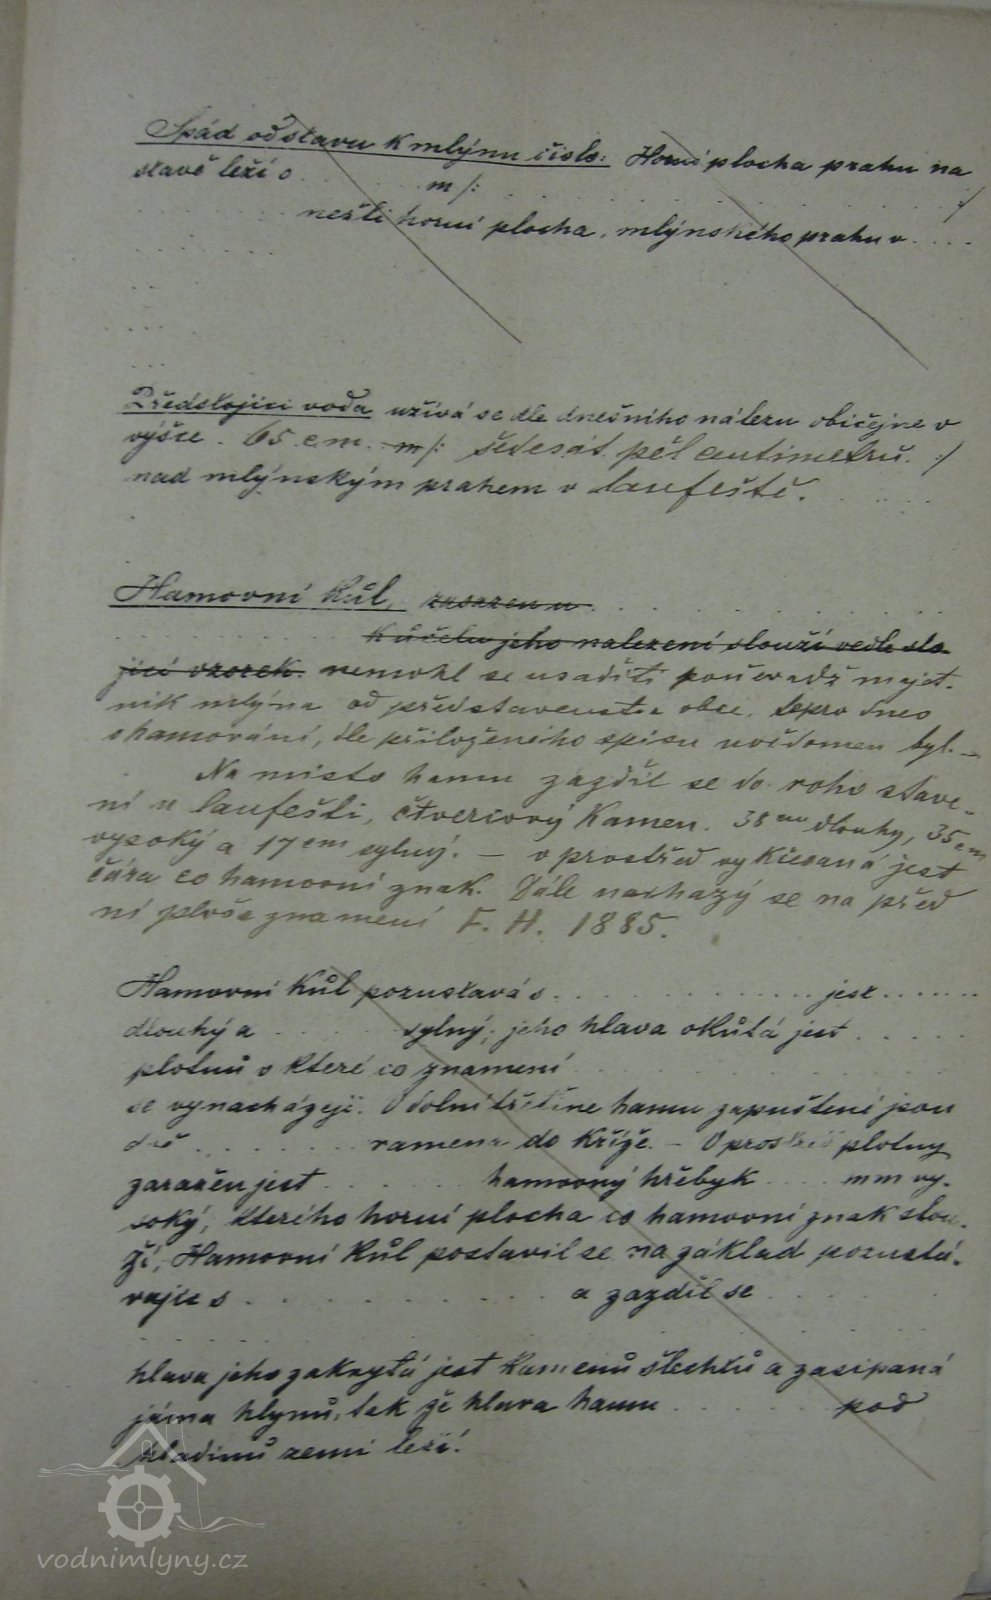 Spád od stavu k mlýnu číslo: Horní plocha prahu na
stavě leží o . . . . . m /: . . . . . . . . :/
. . . . . nežli horní plocha mlýnského prahu v . . . .
Předstojící voda užívá se dle dnešního nálezu običejne v
výšce 65 c.m. m/: šedesát pět centimetrů. :/
nad mlýnským prahem v laufeště.
Hamovní kůl, zasazen u . . . . .
. . . . . k účelu jeho nalezení slouží vedle sto-
jící vzorek. nemohl se usaditi poněvadž majet-
nik mlýna od představenstva obce, tepro dnes
o hamování, dle přiloženého spisu uvědomen byl. —
Na misto hamu zazdil se do roho stave-
ní u laufešti, čtvercový Kamen. 38 cm dlouhy, 35 cm
vysoký a 17 cm sylný. — v prostřed vykřesaná jest
čára co hamovní znak. Dále nachazý se na před
ní ploše znamení F. H. 1885.
Hamovní kůl pozustavá s . . . . . jest . . . . .
dlouhý a . . . . . sylný; jeho hlava okůtá jest . . . . .
plotnů o které co znamení . . . . .
se vynacházejí. V dolní třetine hamu zapuštení jsou
. . . . . ramena do kříže. — V prostřed plotny
zaražen jest . . . . . hamovný hřebyk . . . . mm vy-
soký, kterého horní plocha co hamovní znak slou-
ží, Hamovní kůl postavil se na základ pozustá-
vajíc s . . . . . a zazdil se . . . . .
hlava jeho zakrytá jest kamenů šlechtů a zasipaná
jáma hlynů, tak že hlava hamu . . . . . pod
hladinů zemi leží.
vodnimlyny.cz